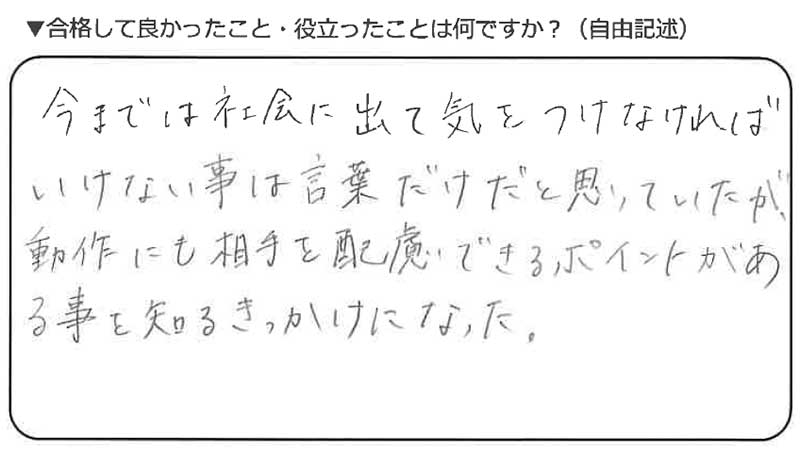 ▼合格して良かったこと・役立ったことは何ですか？（自由記述）
今までは社会に出て気をつけなければ
いけない事は言葉だけだと思っていたが、
動作にも相手を配慮できるポイントがあ
る事を知るきっかけになった。